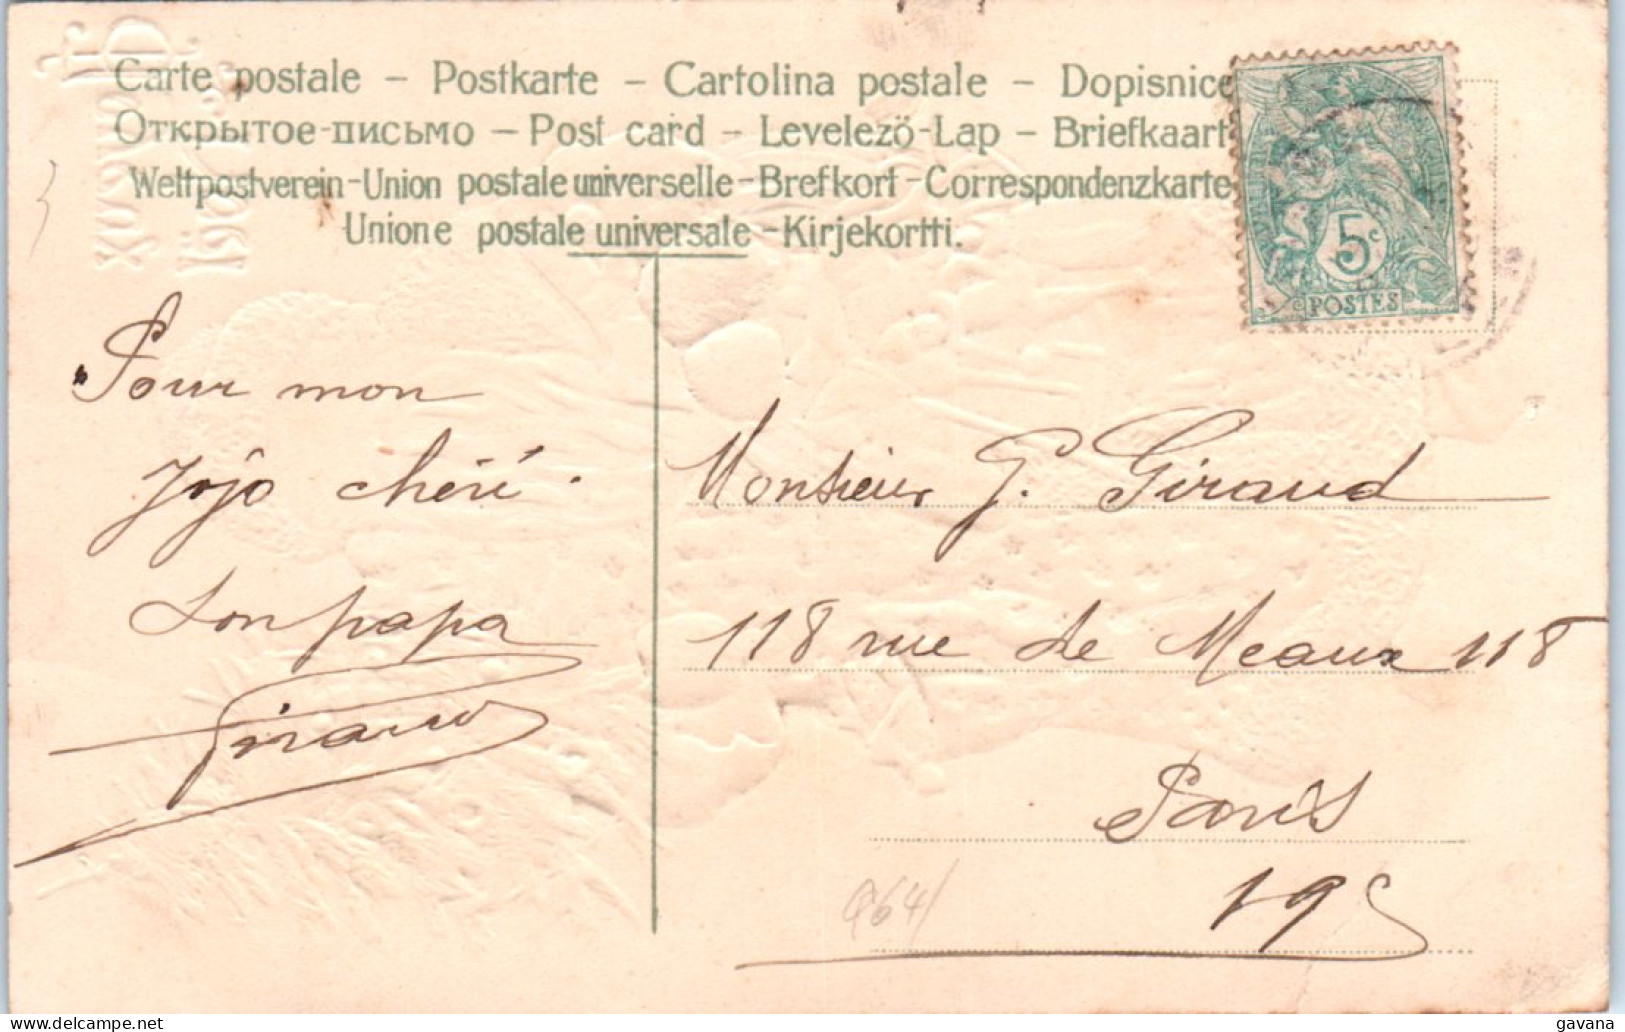 Carte postale – Postkarte – Cartolina postale – Dopisnice
Открытое-письмо – Post card – Levelezö-Lap – Briefkaart
Weltpostverein-Union postale universelle-Brefkort-Correspondenzkarte
Unione postale universale-Kirjekortti.
5c
POSTES
Pour mon
Jojo chéri.
Son papa
Giraud
Monsieur G. Giraud
118 rue de Meaux 118
Paris
19e
gavana